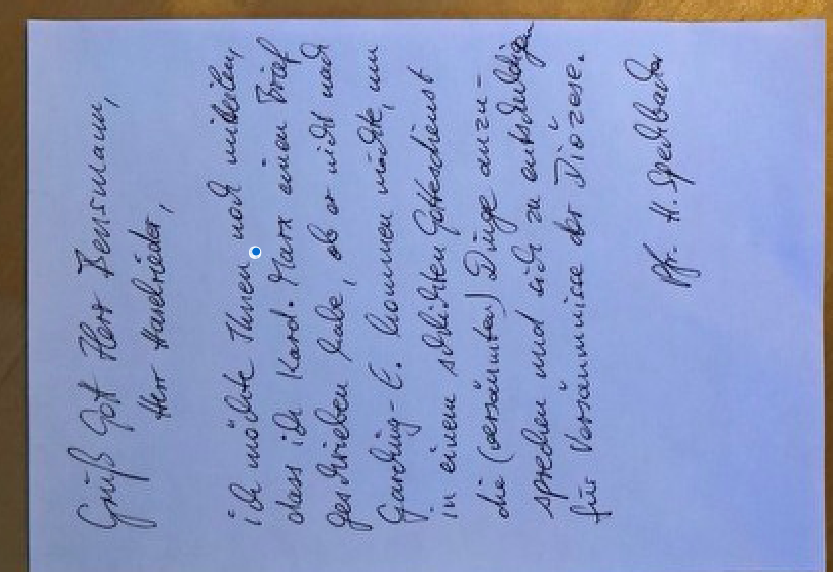 Grüß Gott Herr Bensmann,
Herr Haselrieder,
ich möchte Ihnen noch mitteilen,
dass ich Kard. Marx einen Brief
geschrieben habe, ob er nicht nach
Garching-E. kommen möchte, um
in einem schlichten Gottesdienst
die (versäumten) Dinge anzu-
sprechen und sich zu entschuldigen
für Versäumnisse der Diözese.
Pfr. H. Spechbacher